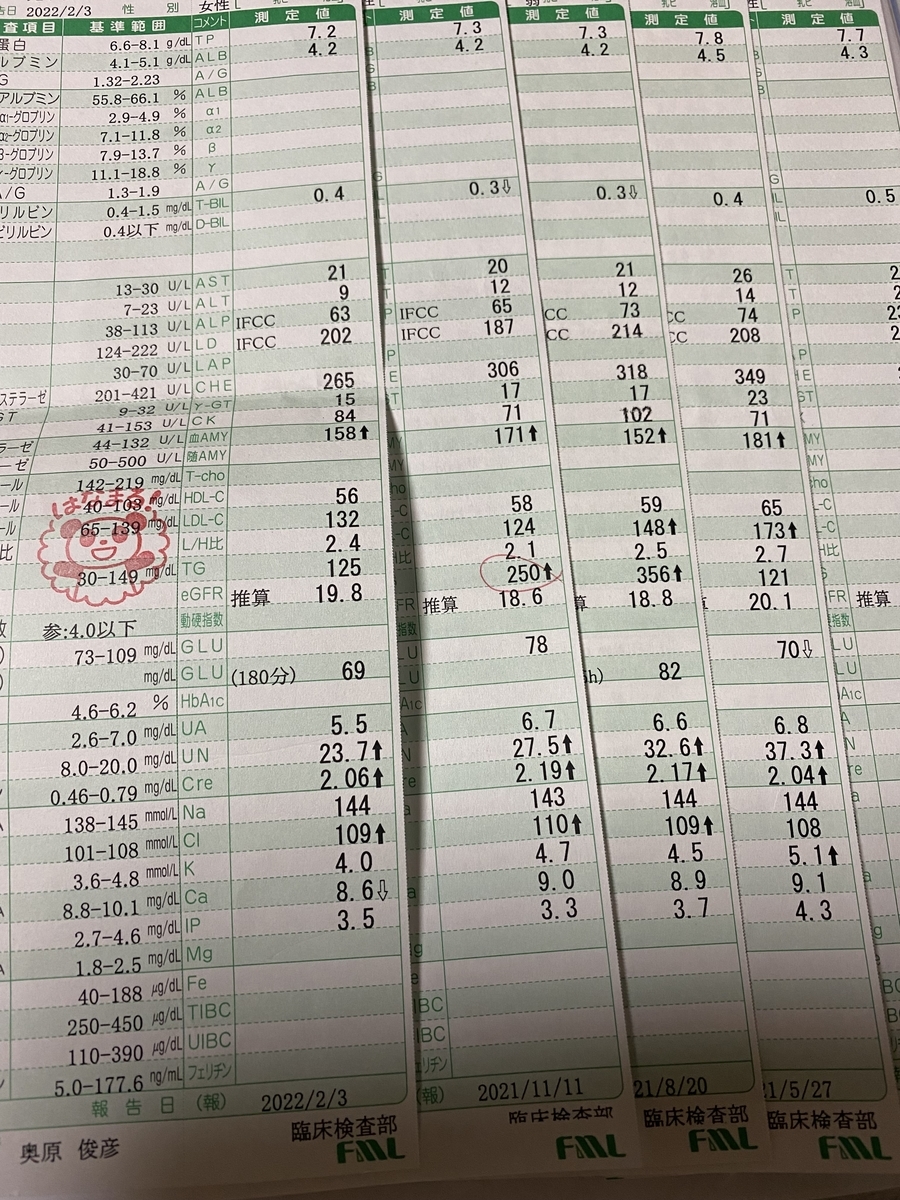 告日 2022/2/3 性 別 女性
査項目 基準範囲 コメント 測定値 測定値 測定値 測定値 測定値
蛋白 6.6-8.1 g/dL TP 7.2 7.3 7.3 7.8 7.7
ルブミン 4.1-5.1 g/dL ALB 4.2 4.2 4.2 4.5 4.3
G 1.32-2.23 A/G
アルブミン 55.8-66.1 % ALB
α1-グロブリン 2.9-4.9 % α1
α2-グロブリン 7.1-11.8 % α2
β-グロブリン 7.9-13.7 % β
γ-グロブリン 11.1-18.8 % γ
A/G 1.3-1.9 A/G
リルビン 0.4-1.5 mg/dL T-BIL 0.4 0.3⇩ 0.3⇩ 0.4 0.5
ビリルビン 0.4以下 mg/dL D-BIL
13-30 U/L AST 21 20 21 26
7-23 U/L ALT 9 12 12 14
38-113 U/L ALP IFCC 63 IFCC 65 CC 73 CC 74
124-222 U/L LD IFCC 202 IFCC 187 CC 214 CC 208
30-70 U/L LAP
ステラーゼ 201-421 U/L CHE 265 306 318 349
GT 9-32 U/L γ-GT 15 17 17 23
41-153 U/L CK 84 71 102 71
ラーゼ 44-132 U/L 血AMY 158⬆ 171⬆ 152⬆ 181⬆
ーゼ 50-500 U/L 随AMY
ール 142-219 mg/dL T-cho
はなまる!
ール 40-103 mg/dL HDL-C 56 58 59 65
ール 65-139 mg/dL LDL-C 132 124 148⬆ 173⬆
比 L/H比 2.4 2.1 2.5 2.7
30-149 mg/dL TG 125 250⬆ 356⬆ 121
eGFR 推算 19.8 推算 18.6 算 18.8 20.1 推算
数 参:4.0以下 動硬指数
73-109 mg/dL GLU 78 70⇩
mg/dL GLU (180分) 69 82
4.6-6.2 % HbA1c
2.6-7.0 mg/dL UA 5.5 6.7 6.6 6.8
8.0-20.0 mg/dL UN 23.7⬆ 27.5⬆ 32.6⬆ 37.3⬆
0.46-0.79 mg/dL Cre 2.06⬆ 2.19⬆ 2.17⬆ 2.04⬆
138-145 mmol/L Na 144 143 144 144
101-108 mmol/L Cl 109⬆ 110⬆ 109⬆ 108
3.6-4.8 mmol/L K 4.0 4.7 4.5 5.1⬆
8.8-10.1 mg/dL Ca 8.6⇩ 9.0 8.9 9.1
2.7-4.6 mg/dL IP 3.5 3.3 3.7 4.3
1.8-2.5 mg/dL Mg
40-188 μg/dL Fe
250-450 μg/dL TIBC
110-390 μg/dL UIBC
5.0-177.6 ng/mL フェリチン
報告日 (報) 2022/2/3 (報) 2021/11/11 21/8/20 1/5/27
臨床検査部 臨床検査部 臨床検査部 臨床検査部
奥原 俊彦 FML FML FML FML